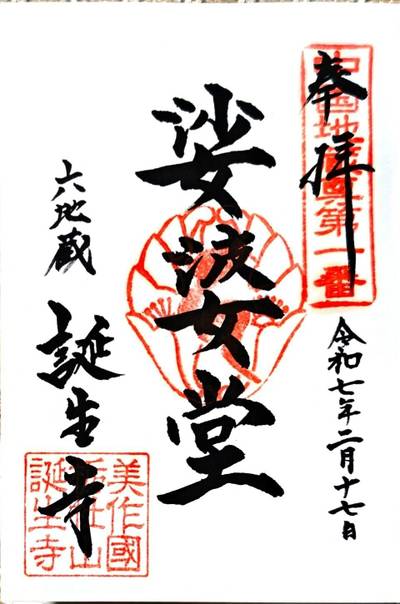 奉拝
中国地蔵尊第一番
令和七年二月十七日
娑婆堂
六地蔵
誕生寺
美作國
山
誕生寺